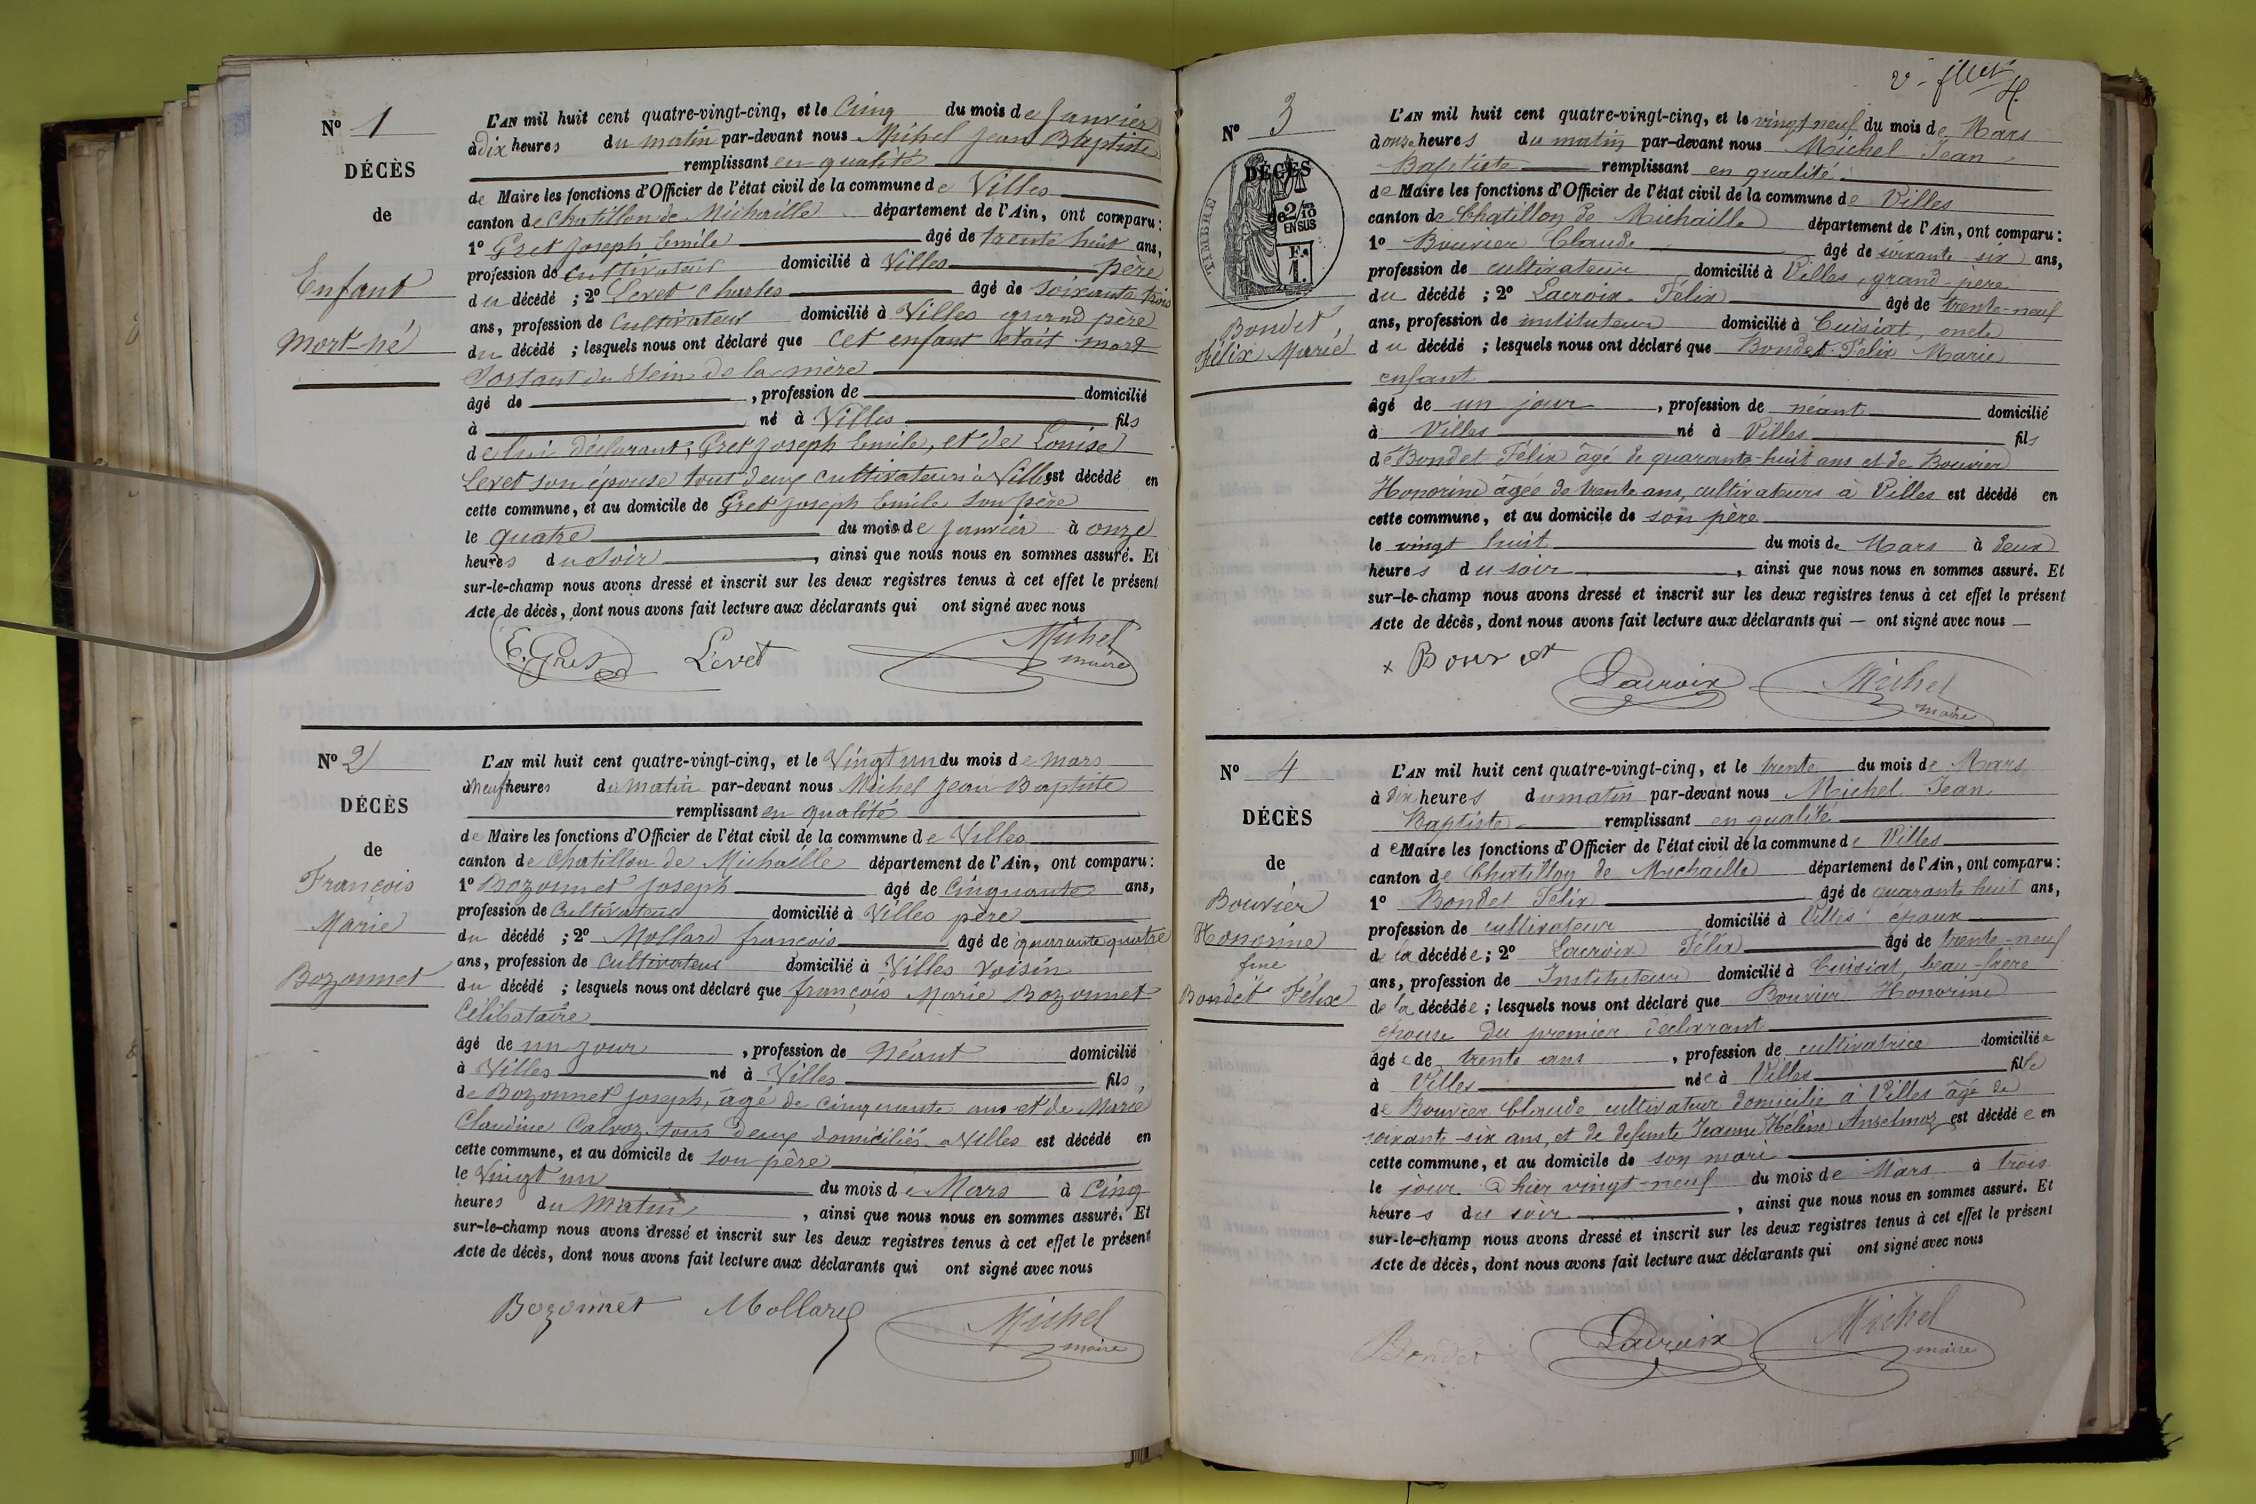 Nº 1
DÉCÈS
de
Enfant
Mort-né
L'AN mil huit cent quatre-vingt-cinq, et le Cinq du mois de Janvier
à Dix heures du matin par-devant nous Michel Jean Baptiste
remplissant en qualité
de Maire les fonctions d'Officier de l'état civil de la commune de Villes
canton de Chatillon de Michaille département de l'Ain, ont comparu :
1º Gret Joseph Emile âgé de trente huit ans,
profession de Cultivateur domicilié à Villes père
du décédé ; 2º Levet Charles âgé de soixante trois
ans, profession de Cultivateur domicilié à Villes grand père
du décédé ; lesquels nous ont déclaré que cet enfant était mort
Sortant du Sein de la mère
âgé de , profession de domicilié
à né à Villes fils
de lui déclarant, Gret Joseph Emile, et de Louise
Levet son épouse tout deux cultivateurs à Villes est décédé en
cette commune, et au domicile de Gret Joseph Emile son père
le quatre du mois de Janvier à onze
heures du Soir , ainsi que nous nous en sommes assuré. Et
sur-le-champ nous avons dressé et inscrit sur les deux registres tenus à cet effet le présent
Acte de décès, dont nous avons fait lecture aux déclarants qui ont signé avec nous
E. Gret Levet Michel
maire
Nº 2
DÉCÈS
de
François
Marie
Bozonnet
L'AN mil huit cent quatre-vingt-cinq, et le Vingt un du mois de mars
à Neuf heures du Matin par-devant nous Michel Jean Baptiste
remplissant en qualité
de Maire les fonctions d'Officier de l'état civil de la commune de Villes
canton de Chatillon de Michaille département de l'Ain, ont comparu :
1º Bozonnet Joseph âgé de Cinquante ans,
profession de Cultivateur domicilié à Villes père
du décédé ; 2º Mollard françois âgé de quarante quatre
ans, profession de Cultivateur domicilié à Villes Voisin
du décédé ; lesquels nous ont déclaré que françois Marie Bozonnet
Célibataire
âgé de un jour , profession de Néant domicilié
à Villes né à Villes fils
de Bozonnet Joseph, âgé de cinquante ans et de Marie
Claudine Calvoz tous deux domiciliés à Villes est décédé en
cette commune, et au domicile de son père
le Vingt un du mois de Mars à Cinq
heures du Matin , ainsi que nous nous en sommes assuré. Et
sur-le-champ nous avons dressé et inscrit sur les deux registres tenus à cet effet le présent
Acte de décès, dont nous avons fait lecture aux déclarants qui ont signé avec nous
Bozonnet Mollard Michel
maire
Nº 3
DÉCÈS
de
TIMBRE
2/10
EN SUS
F.
1.
Bondet,
Félix Marie
L'AN mil huit cent quatre-vingt-cinq, et le vingt neuf du mois de Mars
à onze heures du matin par-devant nous Michel Jean
Baptiste remplissant en qualité
de Maire les fonctions d'Officier de l'état civil de la commune de Villes
canton de Chatillon de Michaille département de l'Ain, ont comparu :
1º Bouvier Claude âgé de soixante six ans,
profession de cultivateur domicilié à Villes, grand-père
du décédé ; 2º Lacroix Félix âgé de trente-neuf
ans, profession de instituteur domicilié à Cuisiat, oncle
du décédé ; lesquels nous ont déclaré que Bondet Félix Marie
enfant
âgé de un jour , profession de néant domicilié
à Villes né à Villes fils
de Bondet Félix âgé de quarante-huit ans et de Bouvier
Honorine âgée de trente ans, cultivateurs à Villes est décédé en
cette commune, et au domicile de son père
le vingt huit du mois de Mars à deux
heures du soir , ainsi que nous nous en sommes assuré. Et
sur-le-champ nous avons dressé et inscrit sur les deux registres tenus à cet effet le présent
Acte de décès, dont nous avons fait lecture aux déclarants qui — ont signé avec nous —
x Bouvier Lacroix Michel
maire
Nº 4
DÉCÈS
de
Bouvier
Honorine
fme
Bondet Félix
L'AN mil huit cent quatre-vingt-cinq, et le trente du mois de Mars
à dix heures du matin par-devant nous Michel Jean
Baptiste remplissant en qualité
de Maire les fonctions d'Officier de l'état civil de la commune de Villes
canton de Chatillon de Michaille département de l'Ain, ont comparu :
1º Bondet Félix âgé de quarante huit ans,
profession de cultivateur domicilié à Villes époux
de la décédée ; 2º Lacroix Félix âgé de trente-neuf
ans, profession de Instituteur domicilié à Cuisiat, beau-frère
de la décédée ; lesquels nous ont déclaré que Bouvier Honorine
épouse du premier déclarant
âgée de trente ans , profession de cultivatrice domiciliée
à Villes née à Villes fille
de Bouvier Claude cultivateur domicilié à Villes âgé de
soixante-six ans, et de defunte Jeanne Hélène Anselmoz est décédée en
cette commune, et au domicile de son mari
le jour d'hier vingt-neuf du mois de Mars à trois
heures du soir , ainsi que nous nous en sommes assuré. Et
sur-le-champ nous avons dressé et inscrit sur les deux registres tenus à cet effet le présent
Acte de décès, dont nous avons fait lecture aux déclarants qui ont signé avec nous
Bondet Lacroix Michel
maire